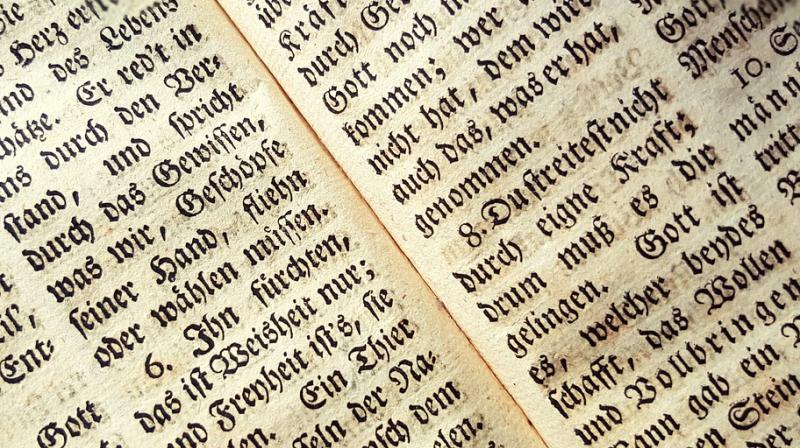 Herz
des Lebens
Er red't in
durch den Ver-
ſtand, und ſpricht
durch das Gewiſſen,
was wir, Geſchöpfe
ſeiner Hand, fliehn
oder wählen müſſen.
6. Ihn fürchten,
das iſt Weisheit nur;
Freyheit iſt's, ſie
Ein Thier
der Na-
dem
Ent-
Gott
durch
Gott noch
kommen; wer
nicht hat, dem wird
auch das, was er hat,
genommen.
8. Du ſtreiteſt nicht
durch eigne Kraft;
drum muß es dir
gelingen. Gott iſt
es, welcher beydes
ſchafft, das Wollen
und Vollbringen
gab ein
Gott,
10.